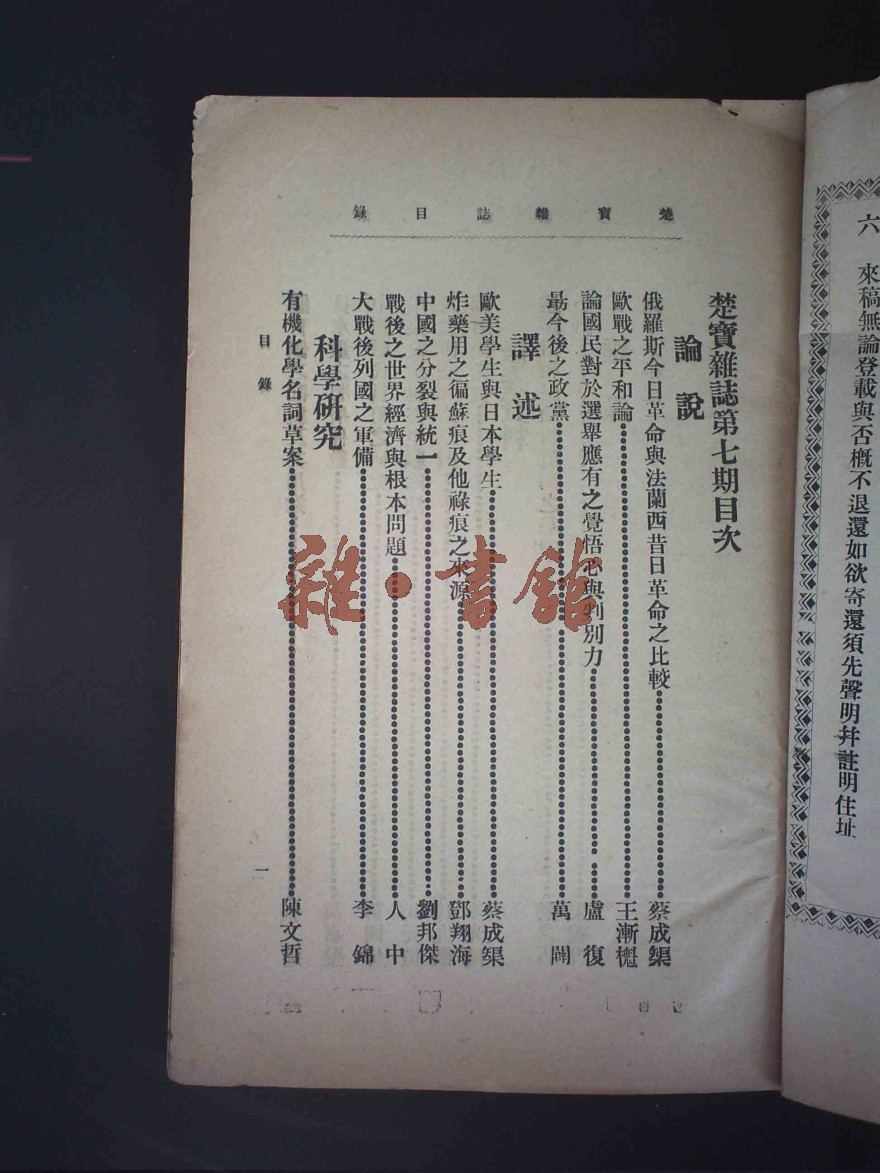 六 來稿無論登載與否概不退還如欲寄還須先聲明幷註明住址
楚寶雜誌目錄
楚寶雜誌第七期目次
論說
俄羅斯今日革命與法蘭西昔日革命之比較 蔡成
歐戰之平和論 王漸
論國民對於選舉應有之覺悟心與判別力 盧復
最今後之政黨 萬
譯述
歐美學生與日本學生 蔡成
炸藥用之徧蘇痕及他祿痕之來源 鄧翔海
中國之分裂與統一 劉邦傑
戰後之世界經濟與根本問題 人中
大戰後列國之軍備 李錦
科學研究
有機化學名詞草案 陳文哲
目錄
一
雜·書館